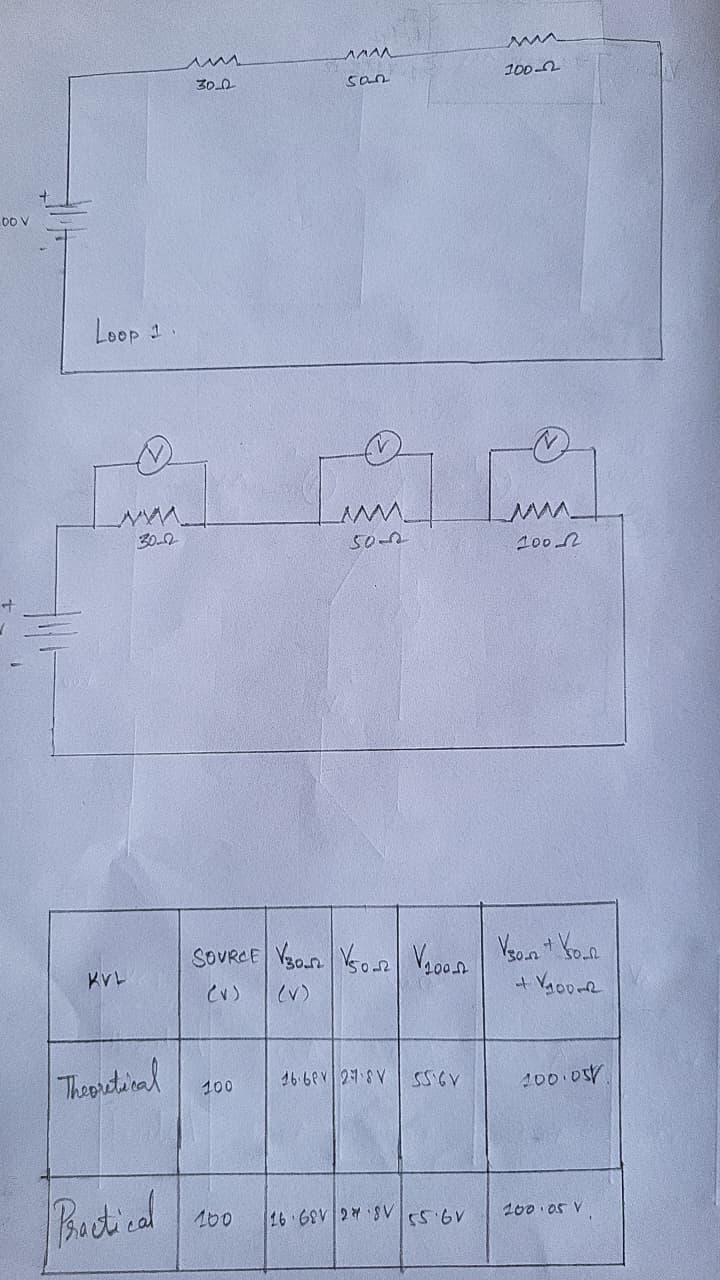 30Ω
50Ω
100Ω
+
00V
-
Loop 1.
V
V
V
30Ω
50Ω
100Ω
+
-
KVL
SOURCE (V)
V30Ω (V)
V50Ω
V100Ω
V30Ω + V50Ω
+ V100Ω
Theoretical
100
16.68V
27.8V
55.6V
100.05V.
Practical
100
16.68V
27.8V
55.6V
100.05 V.